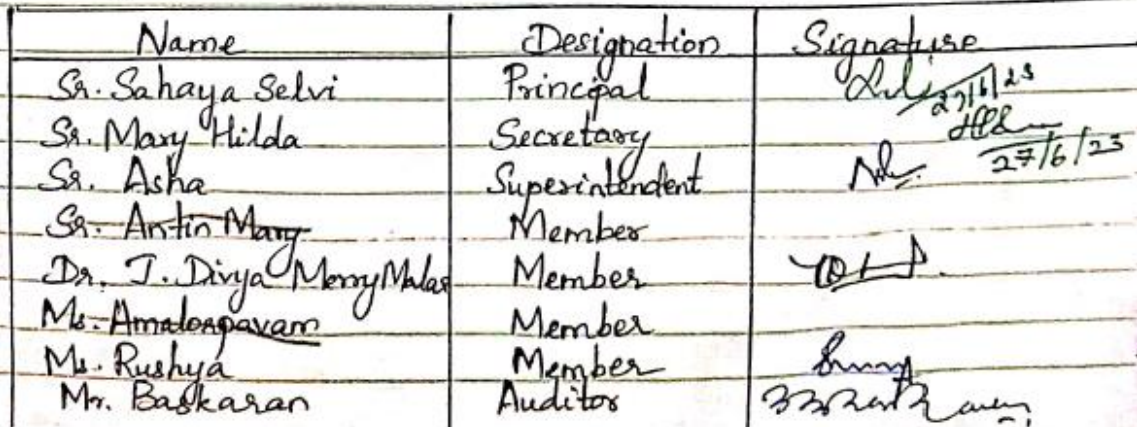 Name Designation Signature
Sr. Sahaya Selvi Principal 27/6/23
Sr. Mary Hilda Secretary 27/6/23
Sr. Asha Superintendent
Sr. Antin Mary Member
Dr. J. Divya Merry Malar Member
Ms. Amalorpavam Member
Ms. Rushya Member
Mr. Baskaran Auditor